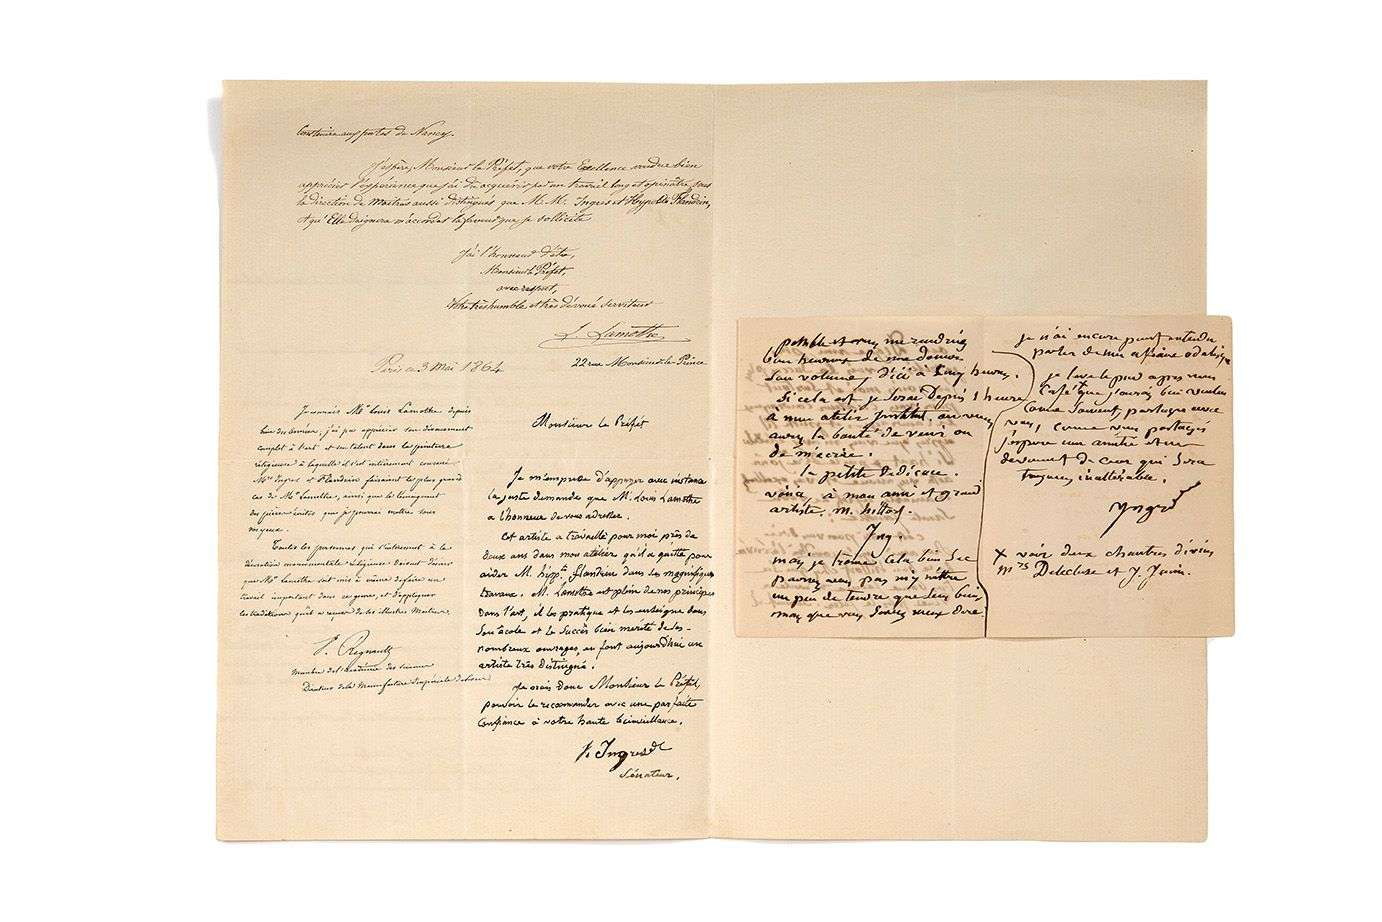 Construire aux portes de Nancy.
J'espère, Monsieur le Préfet, que votre Excellence voudra bien
apprécier l'expérience que j'ai dû acquérir par un travail long et opiniâtre, sous
la direction de maîtres aussi distingués que M.M. Ingres et Hyppolite Flandrin,
et qu'Elle daignera m'accorder la faveur que je sollicite
J'ai l'honneur d'être,
Monsieur le Préfet,
avec respect,
Votre très humble et très dévoué serviteur
L. Lamothe
Paris ce 3 Mai 1864
22 rue Monsieur-le-Prince
Je connais Mr Louis Lamothe depuis
bien des années, j'ai pu apprécier son dévouement
complet à l'art et son talent dans la peinture
religieuse à laquelle il s'est entièrement consacré.
Mrs Ingres et Flandrin faisaient les plus grand
cas de Mr Lamothe, ainsi que le témoignent
des pièces écrites que je pourrai mettre sous
vos yeux.
Toutes les personnes qui s'intéressent à la
décoration monumentale religieuse doivent désirer
que Mr Lamothe soit mis à même de faire un
travail important dans ce genre, et d'appliquer
les traditions qu'il a reçues de ses illustres Maîtres.
V. Regnault
membre de l'Académie des sciences
Directeur de la Manufacture Impériale de Sèvres
Monsieur le Préfet
Je m'empresse d'appuyer avec instance
la juste demande que M. Louis Lamothe
a l'honneur de vous adresser.
Cet artiste a travaillé pour moi près de
deux ans dans mon atelier qu'il a quitté pour
aider M. hippte flandrin dans ses magnifiques
travaux. M. Lamothe est plein de nos principes
dans l'art, il les pratique et les enseigne dans
son école et le succès bien merité de ses
nombreux ouvrages, en font aujourd'hui un
artiste très distingué.
Je crois donc Monsieur le Préfet,
pouvoir le recommander avec une parfaite
confiance à votre haute bienveillance.
J. Ingres
Sénateur.
possible et vous me rendriez
bien heureux de me donner
son volume, d'ici à cinq heures.
Si cela est je serai depuis 1 heure
à mon atelier Institut, ou vous
aurez la bonté de venir ou
de m'écrire.
la petite dedicace.
voici, à mon ami et grand
artiste, m. hittorf.
Ing.
mais je trouve cela bien sec
pourrez vous pas m'y mettre
un peu de tendre que sens bien,
mais que vous saurez mieux dire
je n'ai encore point entendu
parler de mon affaire
je lève le pied après mon
Café + que j'aurais bien voulu
souvent partager avec
vous, comme vous partagez
j'espère une amitié et un
devouement de coeur qui sera
toujours inalterable.
Ingres
+ voir deux chantres divins
mrs Delecluse et J. Janin.